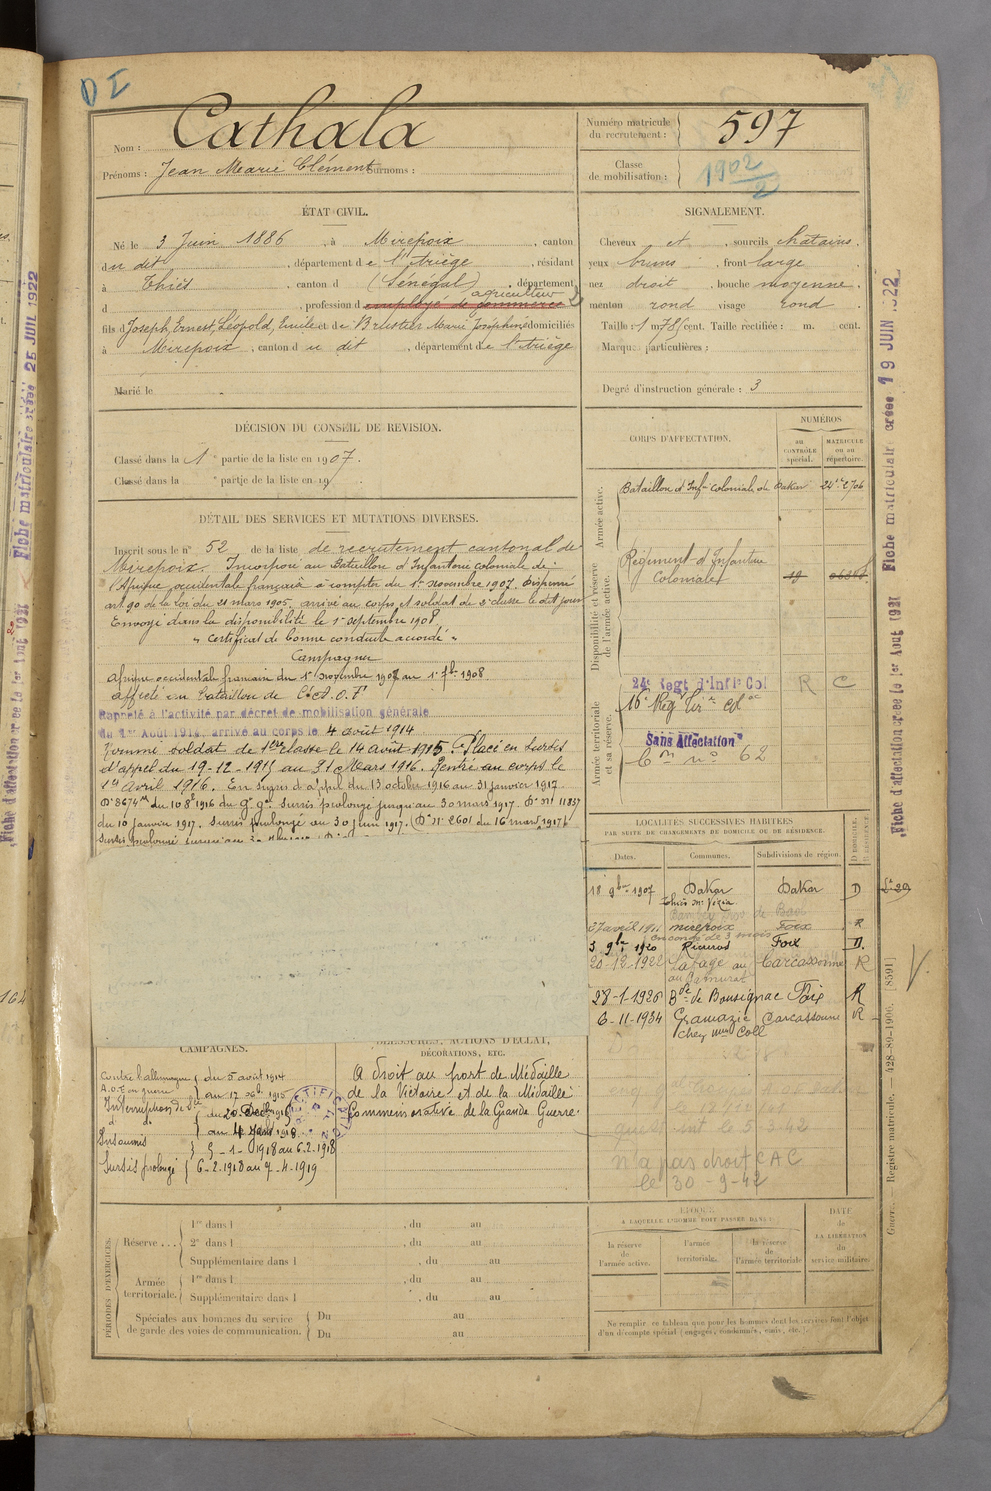 D I
Nom : Cathala
Prénoms : Jean Marie Clément Surnoms :
Numéro matricule du recrutement : 597
Classe de mobilisation : 1902/2
ÉTAT CIVIL.
Né le 3 Juin 1886, à Mirepoix, canton
du dit, département de l'Ariège, résidant
à Thiès, canton d (Sénégal), département
d , profession d employé de commerce agriculteur
fils d Joseph, Ernest, Léopold, Emile et de Brustier Marie Joséphine domiciliés
à Mirepoix, canton du dit, département de l'Ariège
Marié le
SIGNALEMENT.
Cheveux et, sourcils chatains.
yeux bruns, front large
nez droit, bouche moyenne.
menton rond visage rond
Taille : 1 m 78 cent. Taille rectifiée : m. cent.
Marques particulières :
Degré d'instruction générale : 3
DÉCISION DU CONSEIL DE REVISION.
Classé dans la 1e partie de la liste en 1907.
Classé dans la e partie de la liste en 19 .
DÉTAIL DES SERVICES ET MUTATIONS DIVERSES.
Inscrit sous le n° 52 de la liste de recrutement cantonal de
Mirepoix. Incorporé au Bataillon d'Infanterie coloniale de
l'Afrique occidentale française à compter du 1er novembre 1907. Dispensé
art. 90 de la loi du 21 mars 1905. arrivé au corps et soldat de 2e classe le dit jour
Envoyé dans la disponibilité le 1er septembre 1908
" Certificat de bonne conduite accordé "
Campagne
Afrique occidentale française du 1er novembre 1907 au 1er 7bre 1908
affecté au bataillon de l'A.O.F
Rappelé à l'activité par décret de mobilisation générale
du 1er Août 1914, arrivé au corps le 4 août 1914
Nommé soldat de 1ère classe le 14 Août 1915. Placé en sursis
d'appel du 19-12-1915 au 31 Mars 1916. Rentré au corps le
1er Avril 1916. En sursis d'appel du 13 octobre 1916 au 31 janvier 1917
Don 8674 du 10 8bre 1916 du Gt gal. Sursis prolongé jusqu'au 30 mars 1917. Don n° 11837
du 10 janvier 1917. Sursis prolongé au 30 juin 1917. (Don n° 2601 du 16 mars 1917)
Sursis prolongé jusqu'au
CORPS D'AFFECTATION.
NUMÉROS
au CONTRÔLE spécial.
MATRICULE ou au répertoire.
Armée active.
Bataillon d'Infie coloniale de Dakar 24e 2706
Disponibilité et réserve de l'armée active.
Régiment d'Infanterie
Coloniale
Armée territoriale et sa réserve.
24e Regt d'Infie Col R C
16e Regt Tirrs
Sans Affectation
Con n° 62
LOCALITÉS SUCCESSIVES HABITÉES
PAR SUITE DE CHANGEMENTS DE DOMICILE OU DE RÉSIDENCE.
Dates. Communes. Subdivisions de région. D DOMICILE. R RÉSIDENCE.
18 9bre 1907 Dakar Dakar D
27 avril 1911 mirepoix Foix R
en congé de 3 mois
3 9bre 1920 Foix D.
20-12-1922 Carcassonne R
28-1-1926 Bde de Bousignac Foix R
6-11-1934 Gramazie Carcassonne R
chez mme Coll
le 5-3-42
n'a pas droit C A C
le 30-9-42
CAMPAGNES.
Contre l'allemagne du 5 août 1914
A.O.F en guerre au 17 Xbre 1915
Interruption de Sce du 20 Decbre 1915
d° d°
Insoumis 5-1-1918 au 6.2.1918
Sursis prolongé 6-2-1918 au 7-4-1919
BLESSURES, ACTIONS D'ÉCLAT, DÉCORATIONS, ETC.
A droit au port de Médaille
de la Victoire et de la Médaille
Commémorative de la Grande Guerre.
PÉRIODES D'EXERCICES.
Réserve . . .
1re dans l , du au
2e dans l , du au
Supplémentaire dans l , du au
Armée territoriale.
1re dans l , du au
Supplémentaire dans l , du au
Spéciales aux hommes du service de garde des voies de communication.
Du au
Du au
ÉPOQUE
A LAQUELLE L'HOMME DOIT PASSER DANS :
la réserve de l'armée active.
l'armée territoriale.
la réserve de l'armée territoriale
DATE de LA LIBÉRATION du service militaire.
Ne remplir ce tableau que pour les hommes dont les services font l'objet
d'un décompte spécial (engagés, condamnés, omis, etc.).
Fiche matriculaire créée 19 JUIN 1922
Fiche d'affectation créée le 1er Août 1921
Guerre. — Registre matricule. — 428-89-1906. [8591]
Fiche matriculaire créée 25 JUIL 1922
Fiche d'affectation créée le 1er Août 1921
164